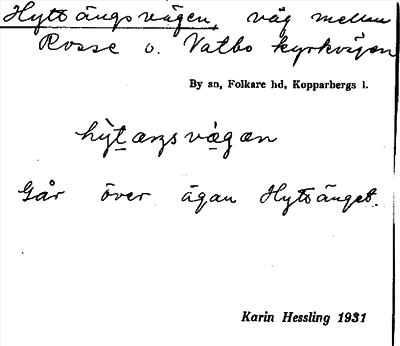 Hyttängsvägen, väg mellan
Rosse o. Vatbo kyrkvägen
By sn, Folkare hd, Kopparbergs l.
hytaŋsvægæn
Går över ägan Hyttänget.
Karin Hessling 1931